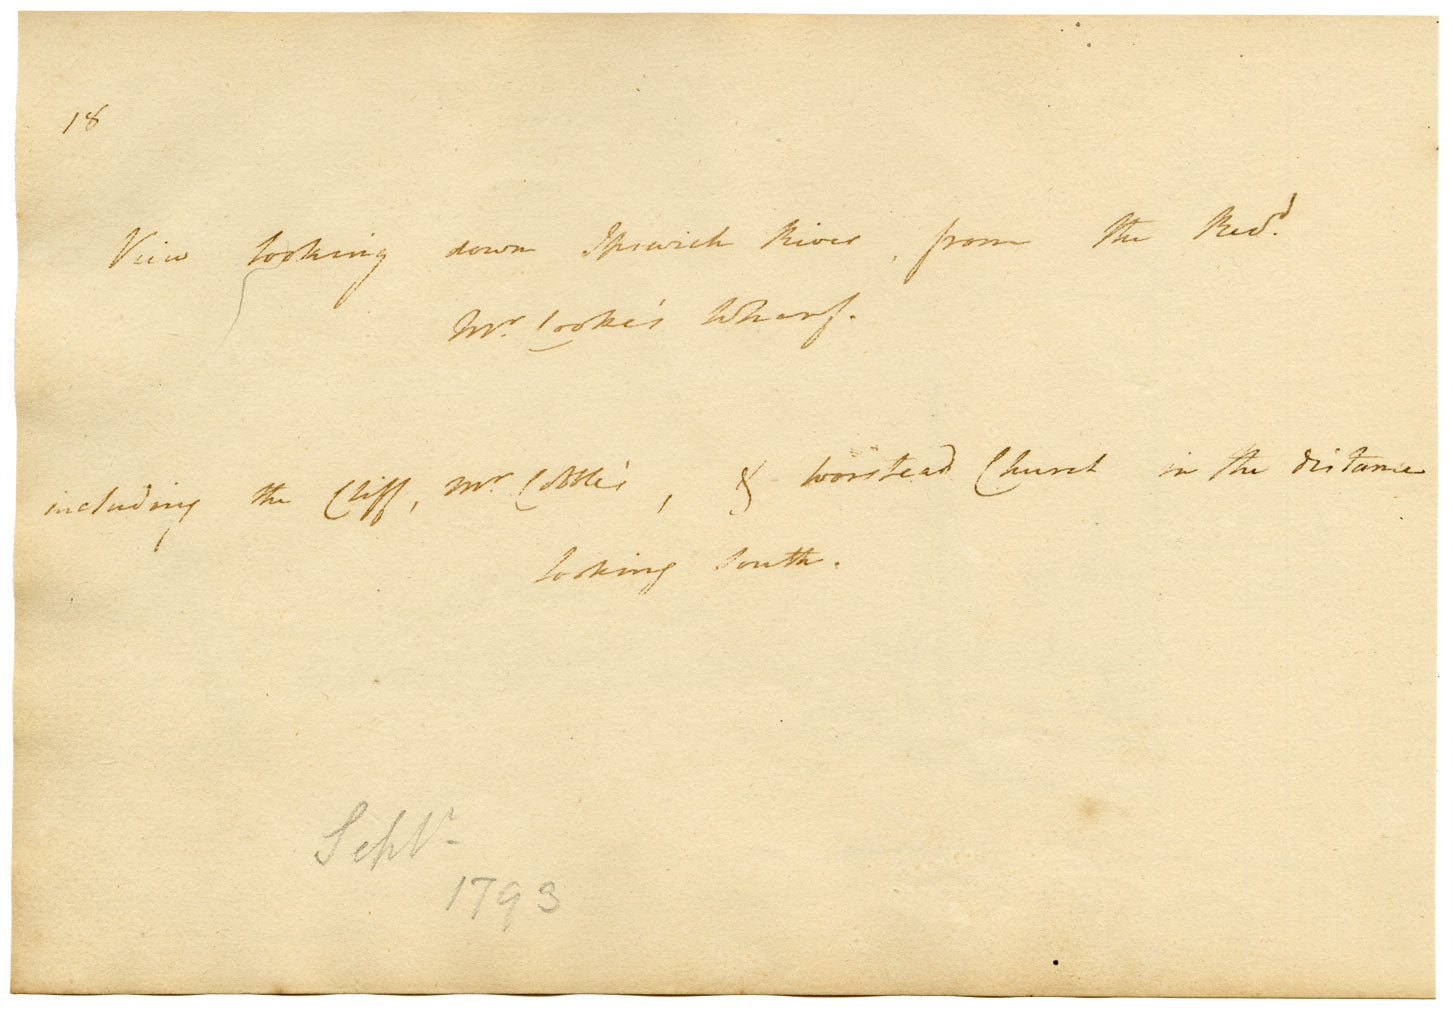 18
View looking down Ipswich River, from the Revd.
Mr. Cooke's Wharf.
including the Cliff, Mr Cobbold's, & Worstead Church in the distance
looking South.
Septr.
1793